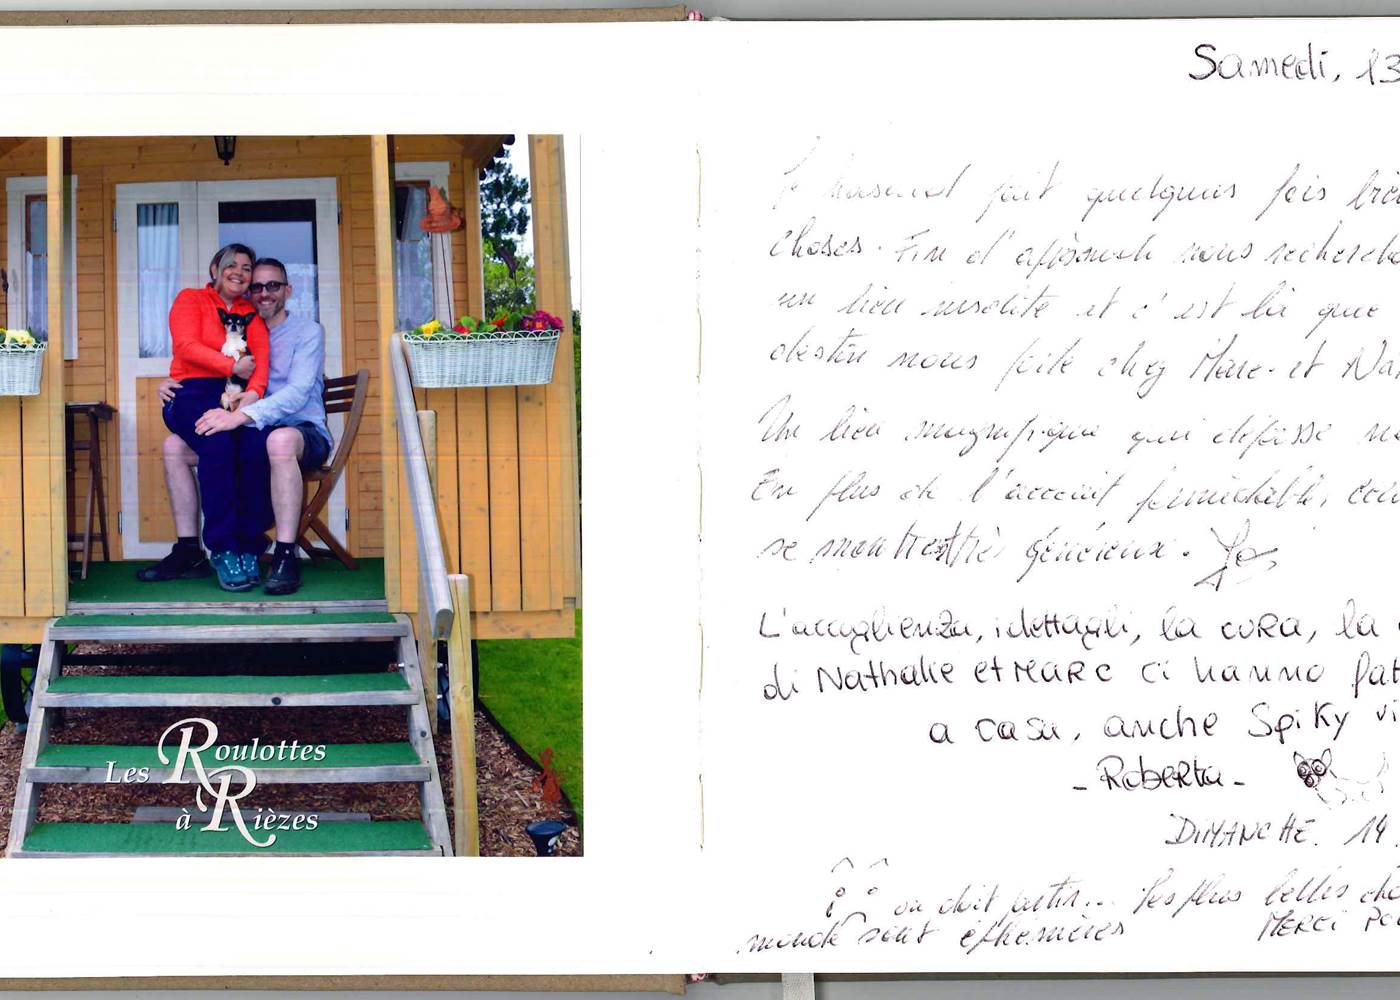 Les Roulottes
à Rièzes
Samedi, 13
Le hasard fait quelques fois
choses. Fin d'après-midi nous
un lieu insolite et c'est là que
destin nous porte chez Marc et
Un lieu magnifique qui dépasse
En plus de l'accueil formidable,
se montre très généreux.
L'accoglienza, i dettagli, la cura, la
di Nathalie et MARC ci hanno
a casa, anche Spiky
- Roberta -
DIMANCHE. 14
on doit partir... les plus belles
monde sont éphémères MERCI